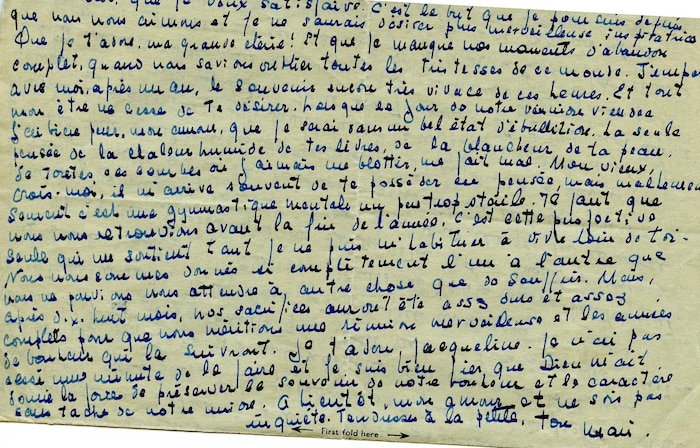 que je veux satisfaire. C'est le but que je poursuis depuis
que nous nous aimons et je ne saurais désirer plus merveilleuse inspiratrice
Que je t'adore, ma grande chérie! Et que je manque nos moments d'abandon
complet, quand nous savions oublier toutes les tristesses de ce monde. J'emporte
avec moi, après un an, le souvenir encore très vivace de ces heures. Et tout
mon être ne cesse de te désirer. Lorsque le jour de notre réunion viendra
J'ai bien peur, mon amour, que je serai dans un bel état d'ébullition. La seule
pensée de la chaleur humide de tes lèvres, de la blancheur de ta peau,
de toutes ces courbes où j'aimais me blottir, me fait mal. Mon vieux,
crois-moi, il m'arrive souvent de te posséder en pensée, mais malheureusement
souvent c'est une gymnastique mentale un peu trop stoïcle. Il faut que
nous nous retrouvions avant la fin de l'année. C'est cette perspective
seule qui me soutient tant je ne puis m'habituer à vivre loin de toi.
Nous nous sommes donnés si complètement l'un à l'autre que
nous ne pouvions nous attendre à autre chose que de souffrir. Mais,
après dix-huit mois, nos sacrifices auront été assez durs et assez
complets pour que nous méritions une réunion merveilleuse et les années
de bonheur qui la suivront. Je t'adore, Jacqueline. Je n'ai pas
cessé une minute de le faire et je suis bien fier que Dieu m'ait
donné la force de préserver le souvenir de notre bonheur et le caractère
sans tache de notre union. A bientôt, mon amour et ne sois pas
inquiète. Tendresses à la petite. Ton mari.
First fold here